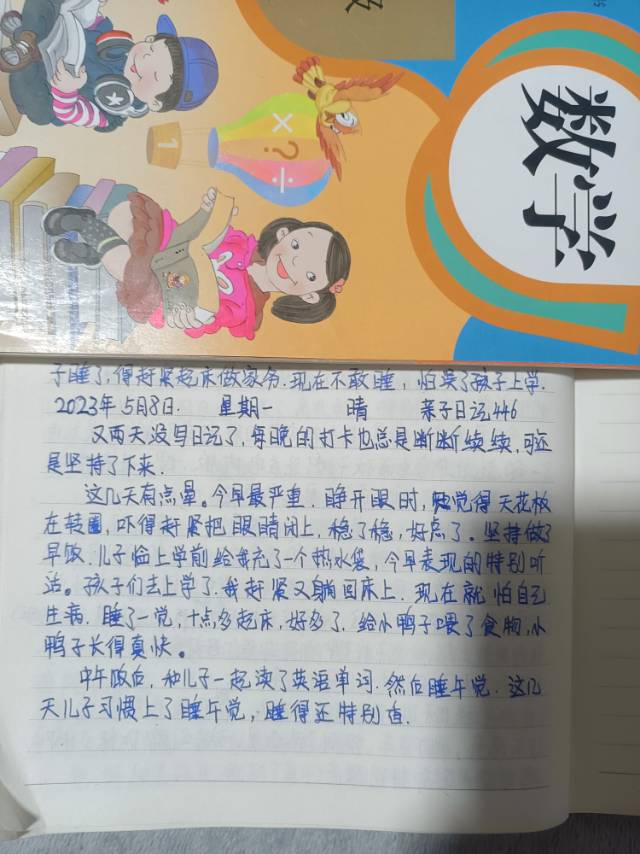 级
数学
× ? ÷
1
子睡了，得赶紧起床做家务.现在不敢睡，怕误了孩子上学.
2023年5月8日. 星期一 晴 亲子日记446
又两天没写日记了，每晚的打卡也总是断断续续，可还
是坚持了下来.
这几天有点晕。今早最严重.睁开眼时，觉得天花板
在转圈，吓得赶紧把眼睛闭上，稳了稳，好点了.坚持做了
早饭.儿子临上学前给我充了一个热水袋，今早表现的特别听
话。孩子们去上学了.我赶紧又躺回床上.现在就怕自己
生病.睡了一觉，十点多起床，好多了.给小鸭子喂了食物，小
鸭子长得真快。
中午饭后，和儿子一起读了英语单词.然后睡午觉.这几
天儿子习惯上了睡午觉，睡得还特别香.